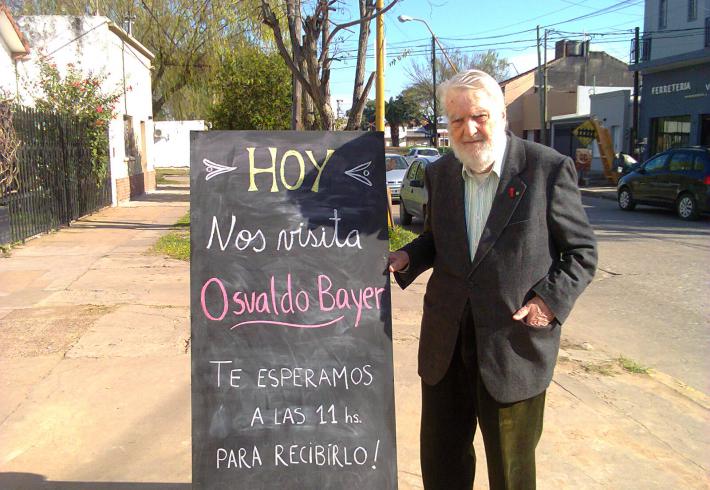 HOY
Nos visita
Osvaldo Bayer
TE ESPERAMOS
A LAS 11 hs.
PARA RECIBIRLO!
FERRETERIA